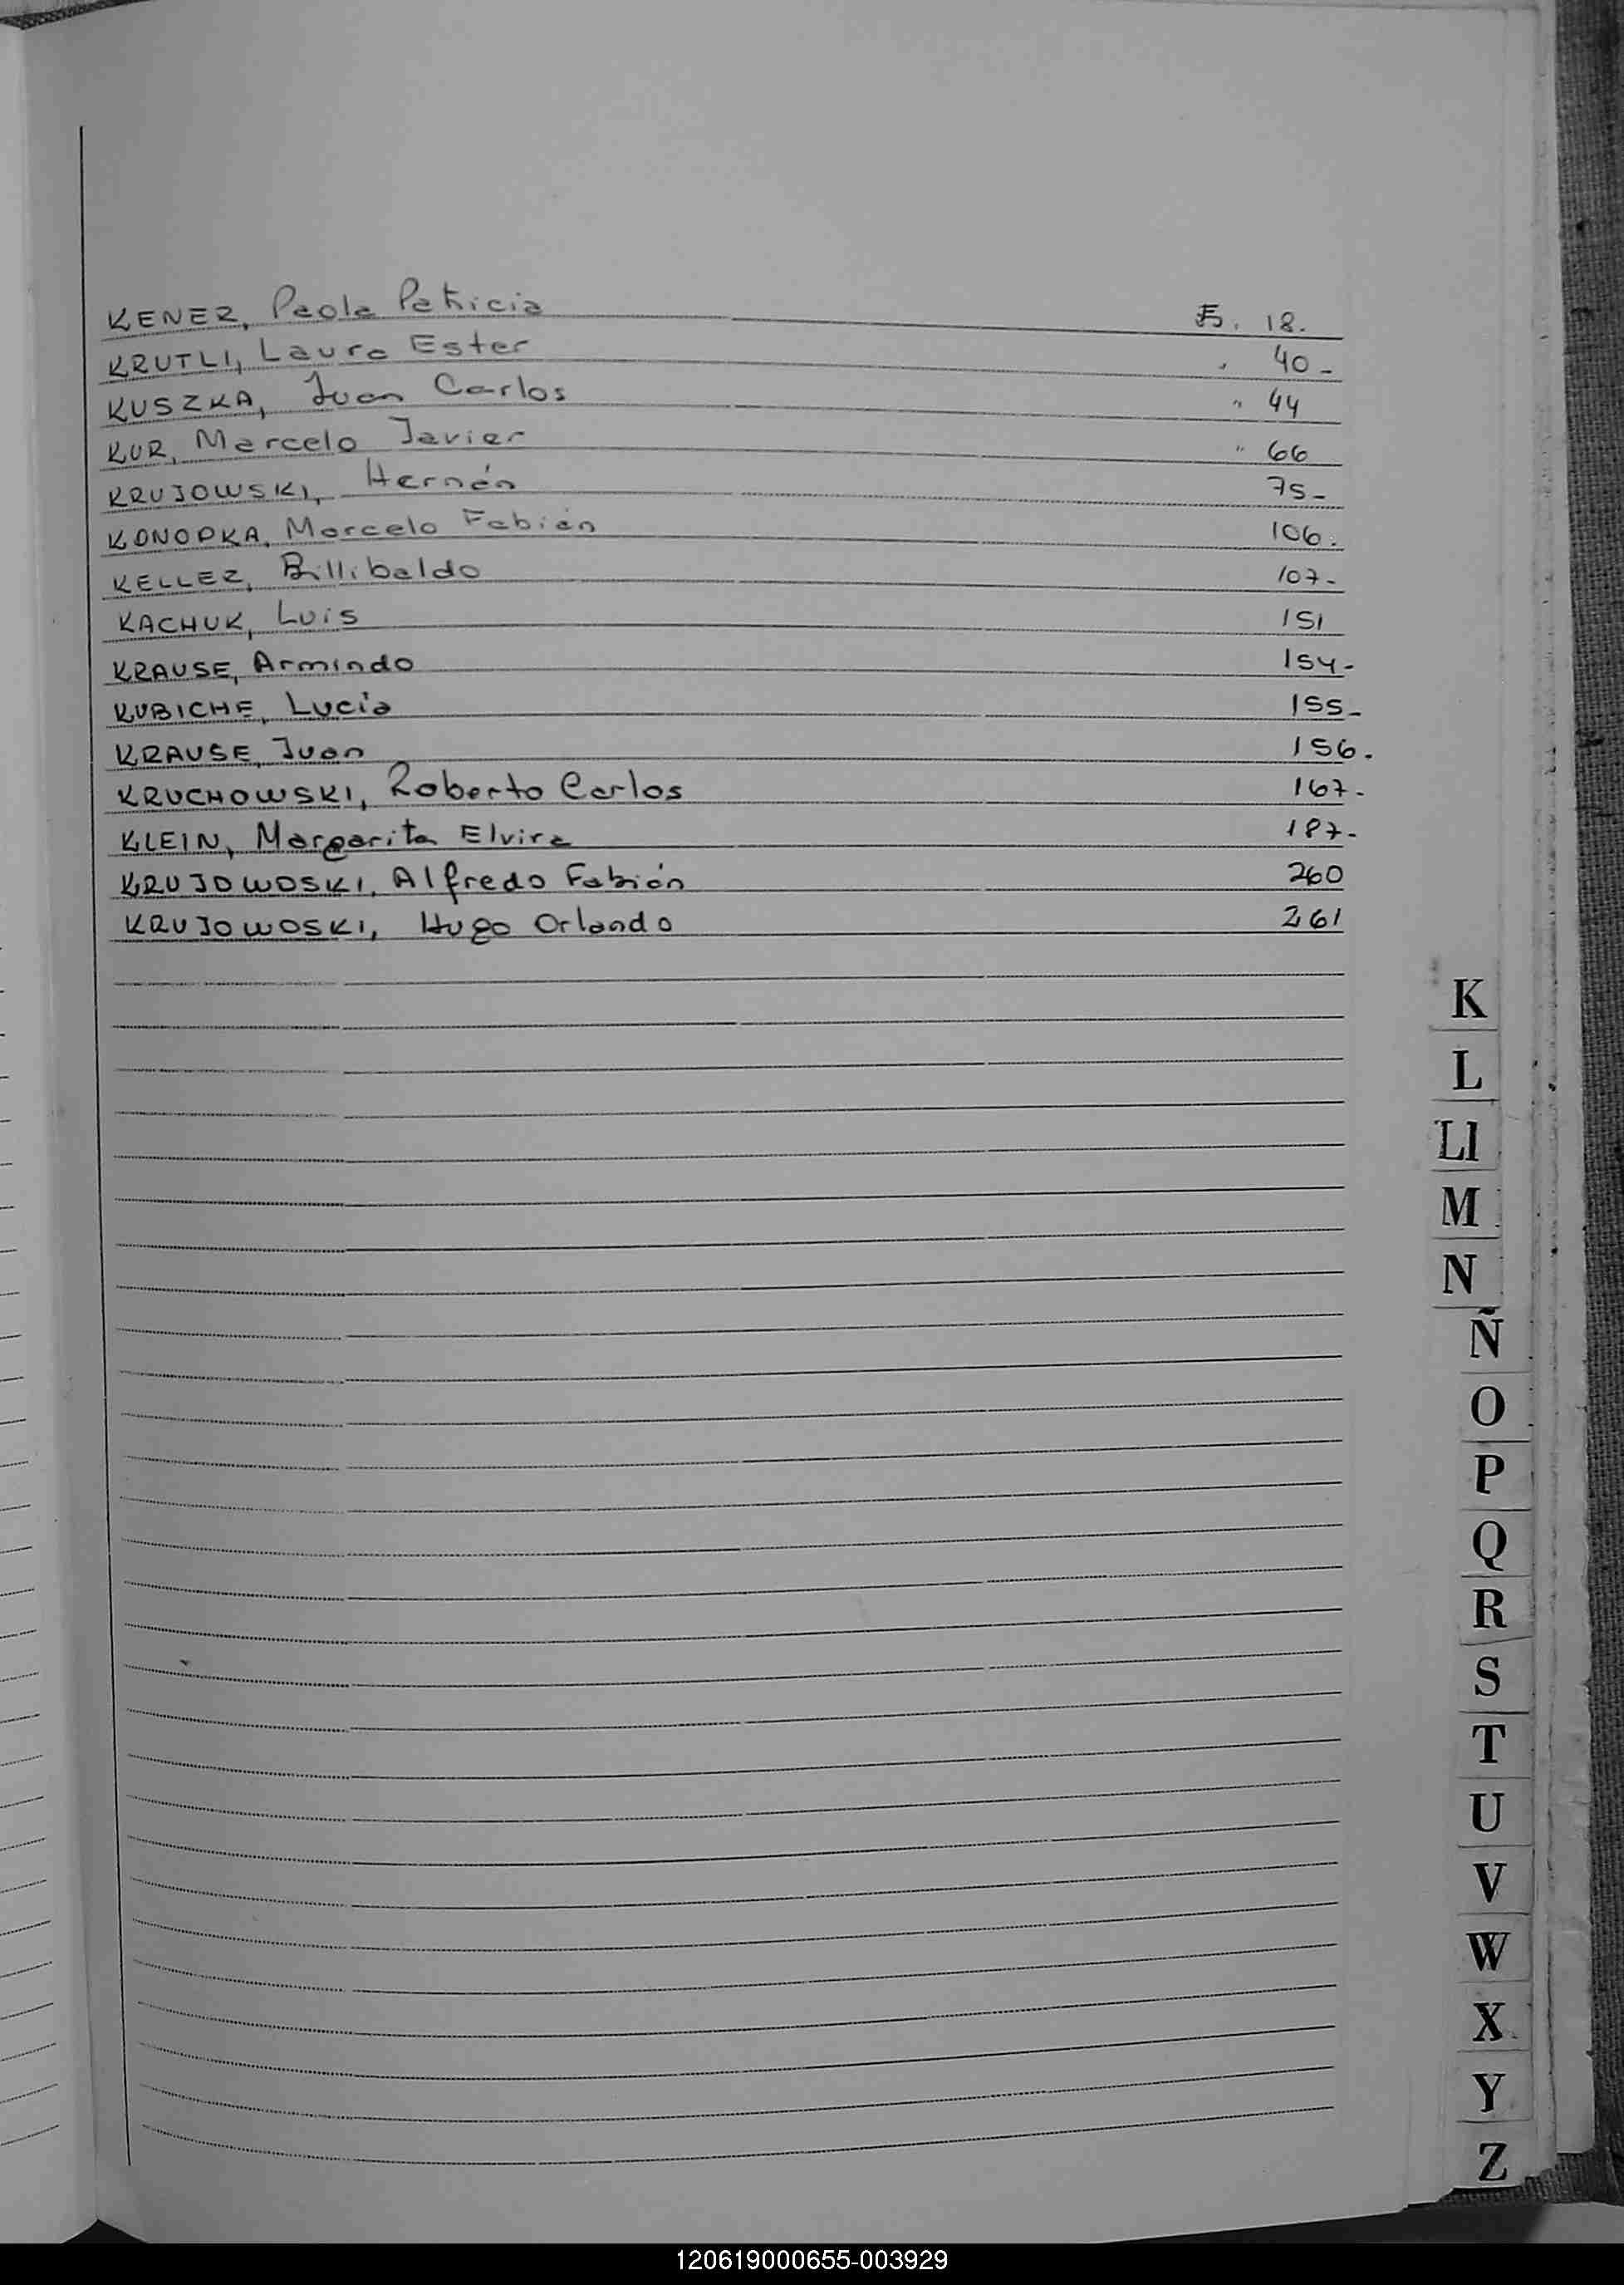 KENEZ, Paola Patricia Fs. 18.
KRUTLI, Laura Ester " 40-
KUSZKA, Juan Carlos " 44
KUR, Marcelo Javier " 66
KRUJOWSKI, Hernán 75-
KONOPKA, Marcelo Fabián 106.
KELLEZ, Billibaldo 107-
KACHUK, Luis 151
KRAUSE, Armindo 154-
KUBICHE, Lucia 155-
KRAUSE, Juan 156.
KRUCHOWSKI, Roberto Carlos 167-
KLEIN, Margarita Elvira 187-
KRUJOWOSKI, Alfredo Fabián 260
KRUJOWOSKI, Hugo Orlando 261
K
L
Ll
M
N
Ñ
O
P
Q
R
S
T
U
V
W
X
Y
Z
120619000655-003929